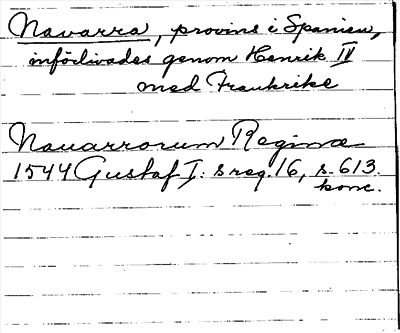 Navarra, provins i Spanien,
införlivades genom Henrik IV
med Frankrike
Navarrorum Regina
1544 Gustaf I: s reg. 16, s. 613.
konc.